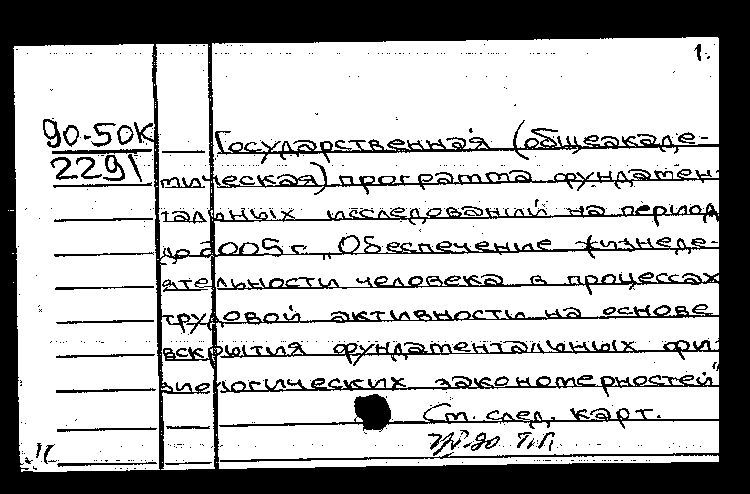 1.
90-50К
2291
Государственная (общеакаде-
мическая) программа фундамен-
тальных исследований на период
до 2005 г. „Обеспечение жизнеде-
ятельности человека в процессах
трудовой активности на основе
вскрытия фундаментальных фи-
зиологических закономерностей"
См. след. карт.